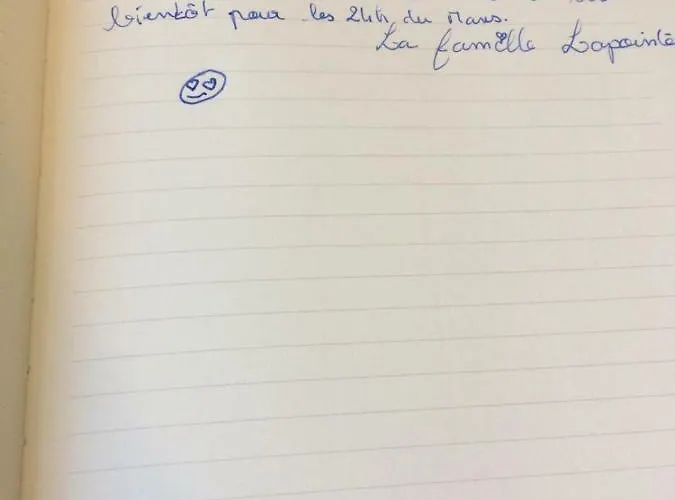 bientôt pour les 24h du Mans.
La famille Lapointe